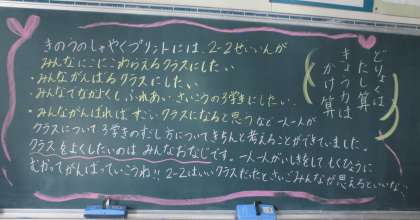 どりょくは
足し算
きょう力は
かけ算
きのうのしゃくプリントには、2-2せいいんが
みんなにこにこわらえるクラスにしたい
・みんながんばるクラスにしたい
・みんなでなかよくし、ふれあい、さいこうの3学きにしたい。
・みんながんばれば、すごいクラスになると思うなど一人一人が
クラスについて3学きのすごし方についてきちんと考えることができていました。
クラスをよくしたいのはみんなおなじです。一人一人がいしきをしてもくひょうに
むかってがんばっていこうね!!2-2はいいクラスだったとさいごみんなが思えるといいな!!